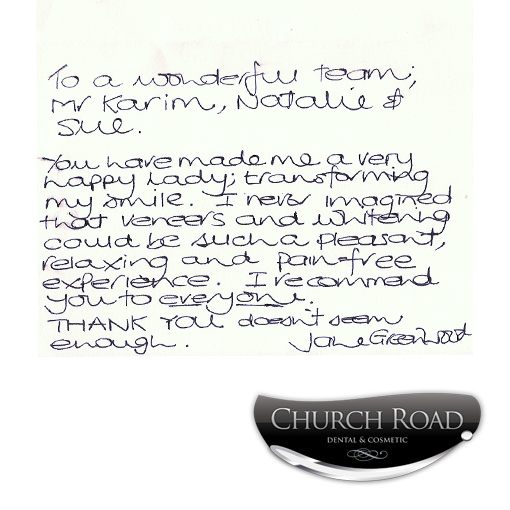 To a wonderful team;
Mr Karim, Natalie &
Sue.
You have made me a very
happy lady; transforming
my smile. I never imagined
that veneers and whitening
could be such a pleasant,
relaxing and pain-free
experience. I recommend
you to everyone.
THANK YOU doesn't seem
enough. Jane Greenwood
CHURCH ROAD
DENTAL & COSMETIC